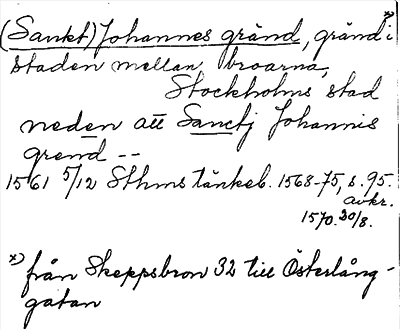 x)
(Sankt) Johannes gränd, gränd i
staden mellan broarna,
Stockholms stad
neden att Sanctj Johannis
grend --
1561 5/12 Sthms tänkeb. 1568-75, s. 95.
avkr.
1570. 30/8.
x) från Skeppsbron 32 till Österlång-
gatan